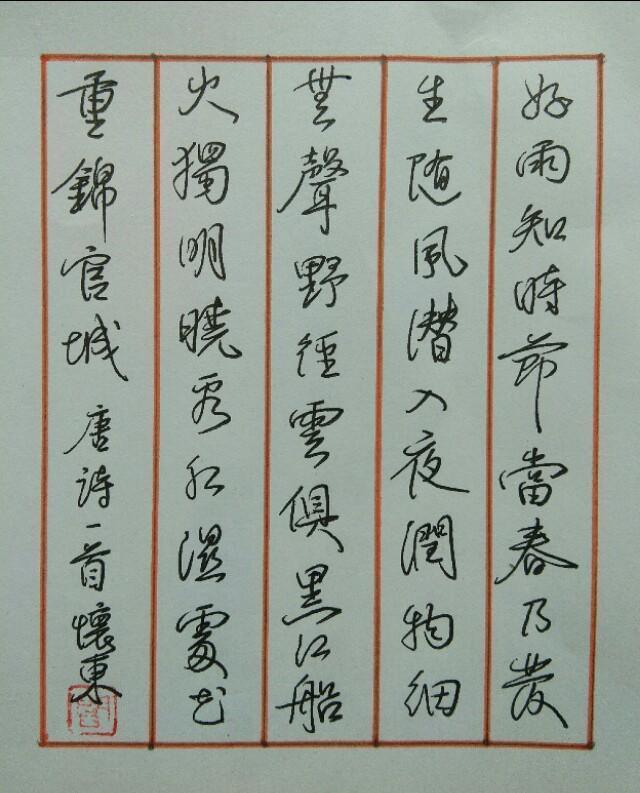 好雨知時節當春乃發
生随風潛入夜潤物細
無聲野徑雲俱黑江船
火獨明曉看紅濕處花
重錦官城 唐诗一首懷東